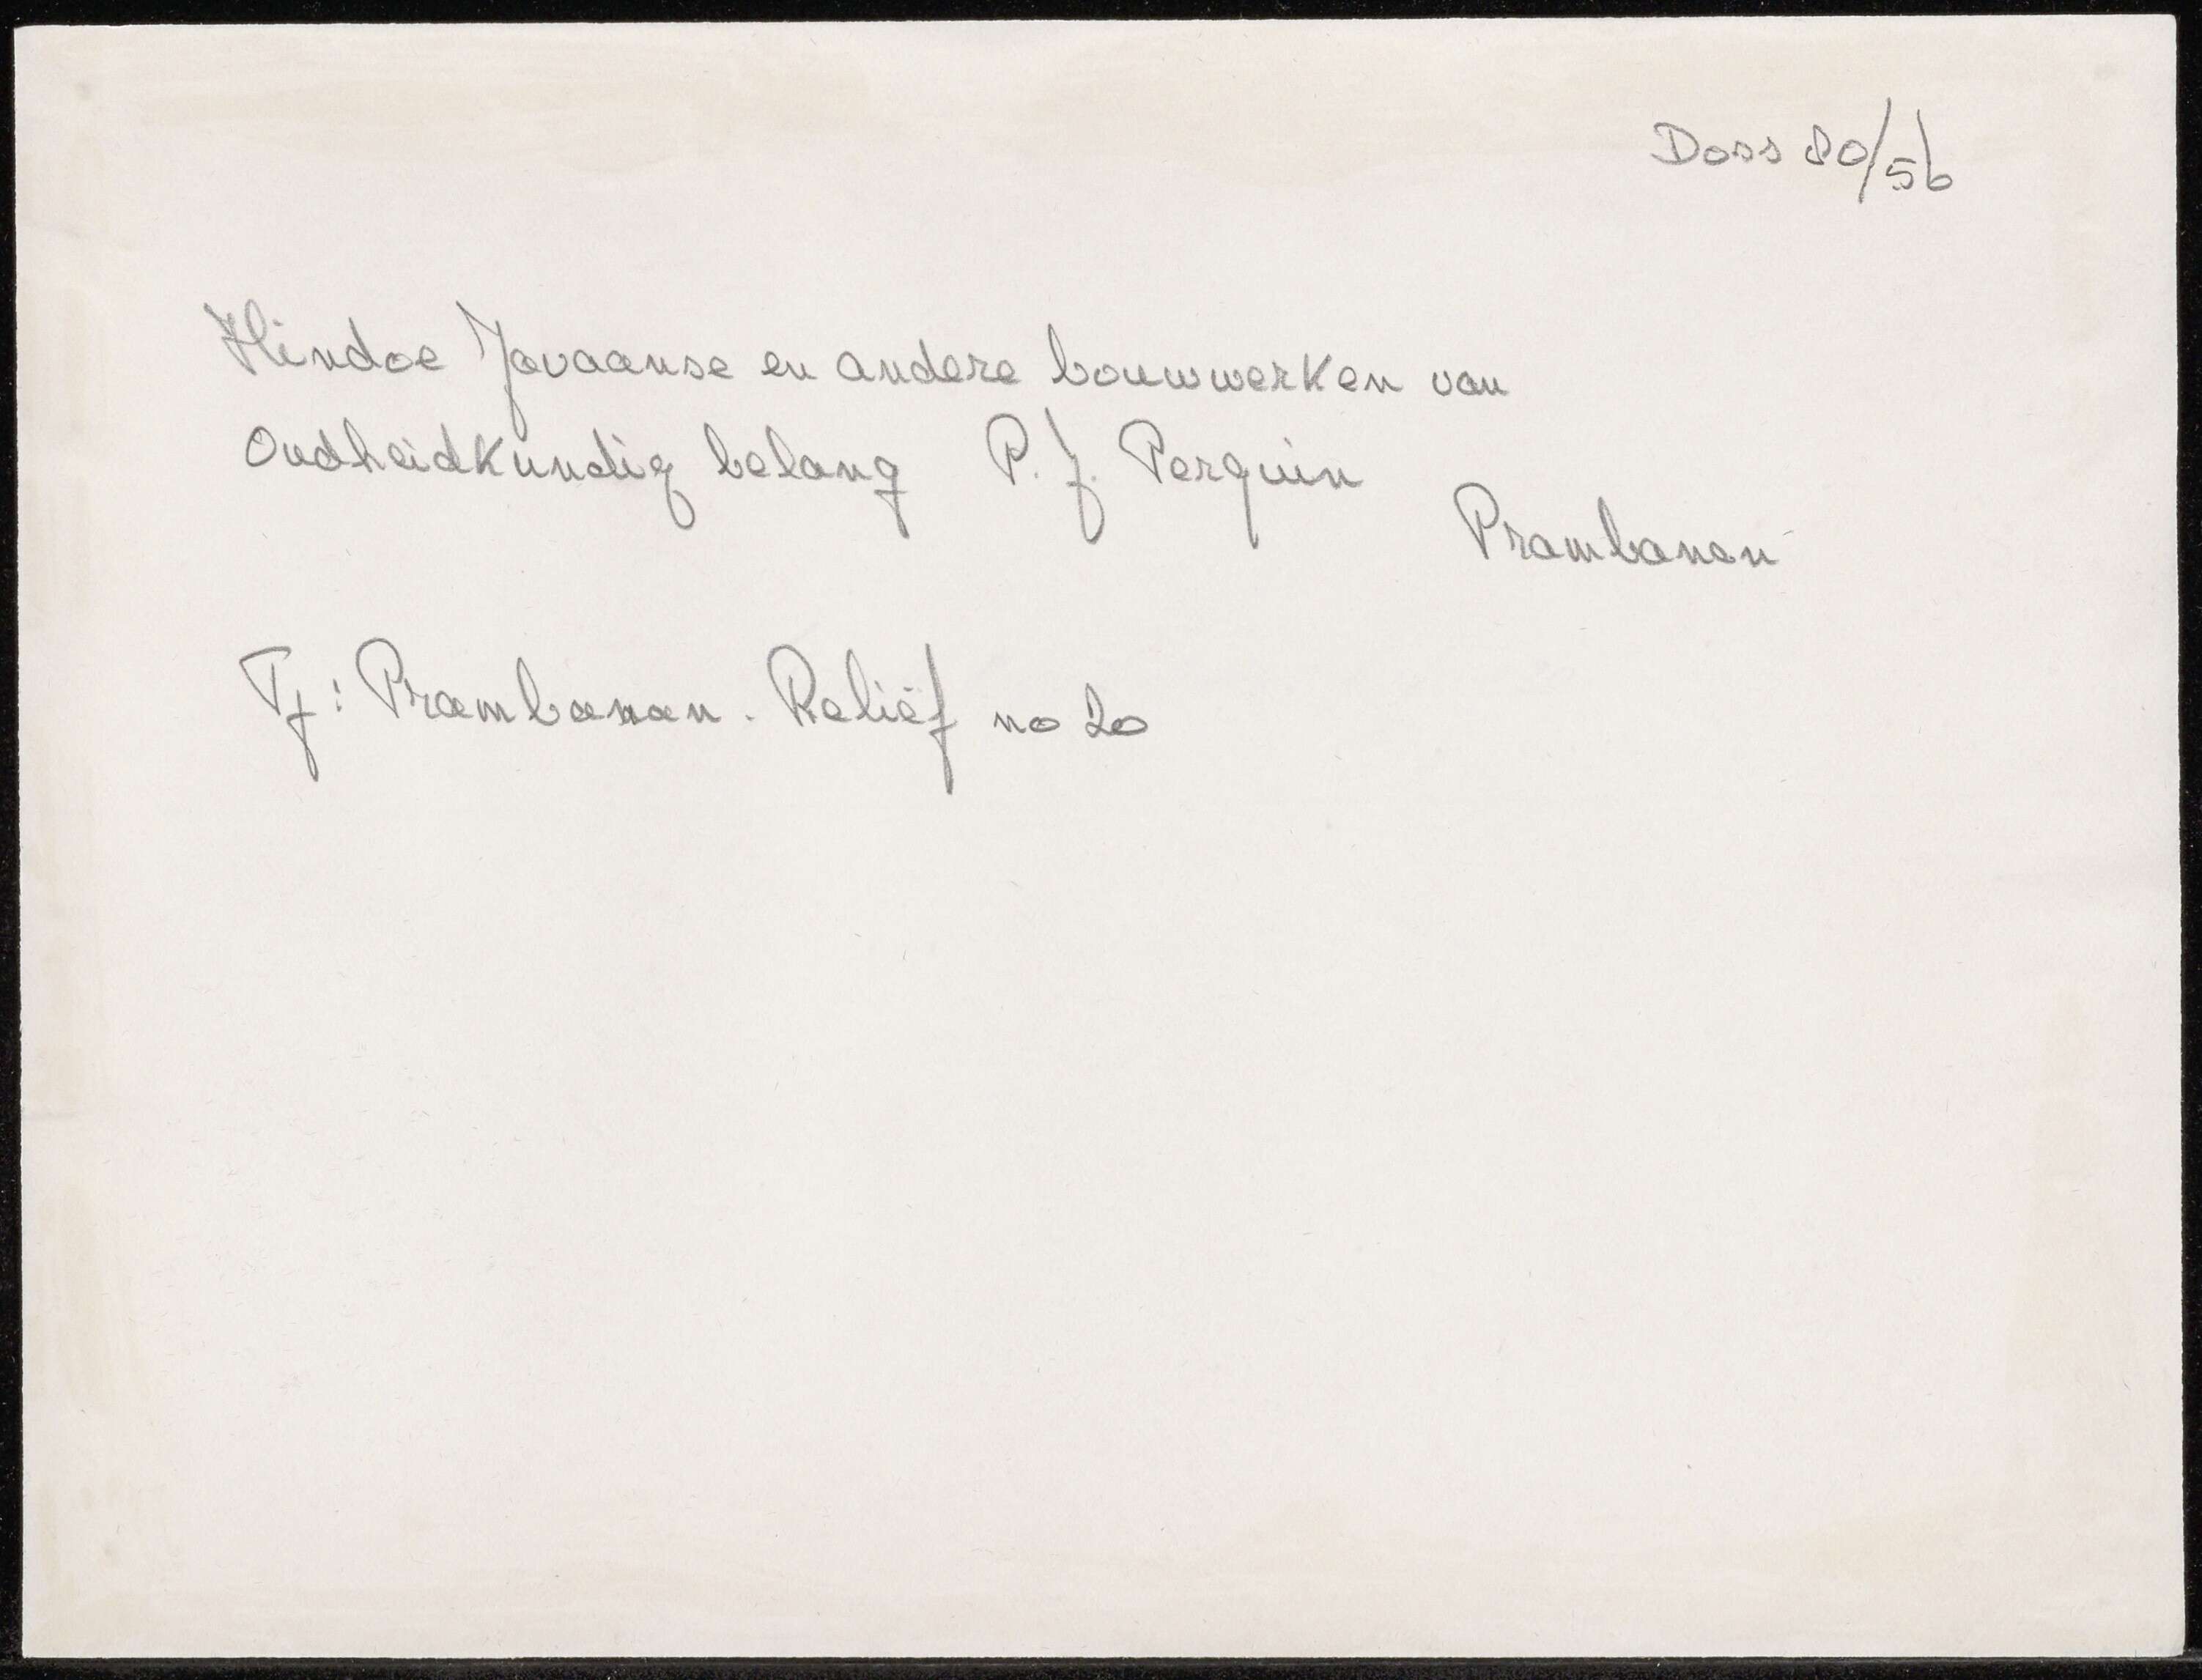 Doss 80/56
Hindoe Javaanse en andere bouwwerken van
Oudheidkundig belang P. J. Perquin
Prambanan
Tj: Prambanan. Reliëf no 20